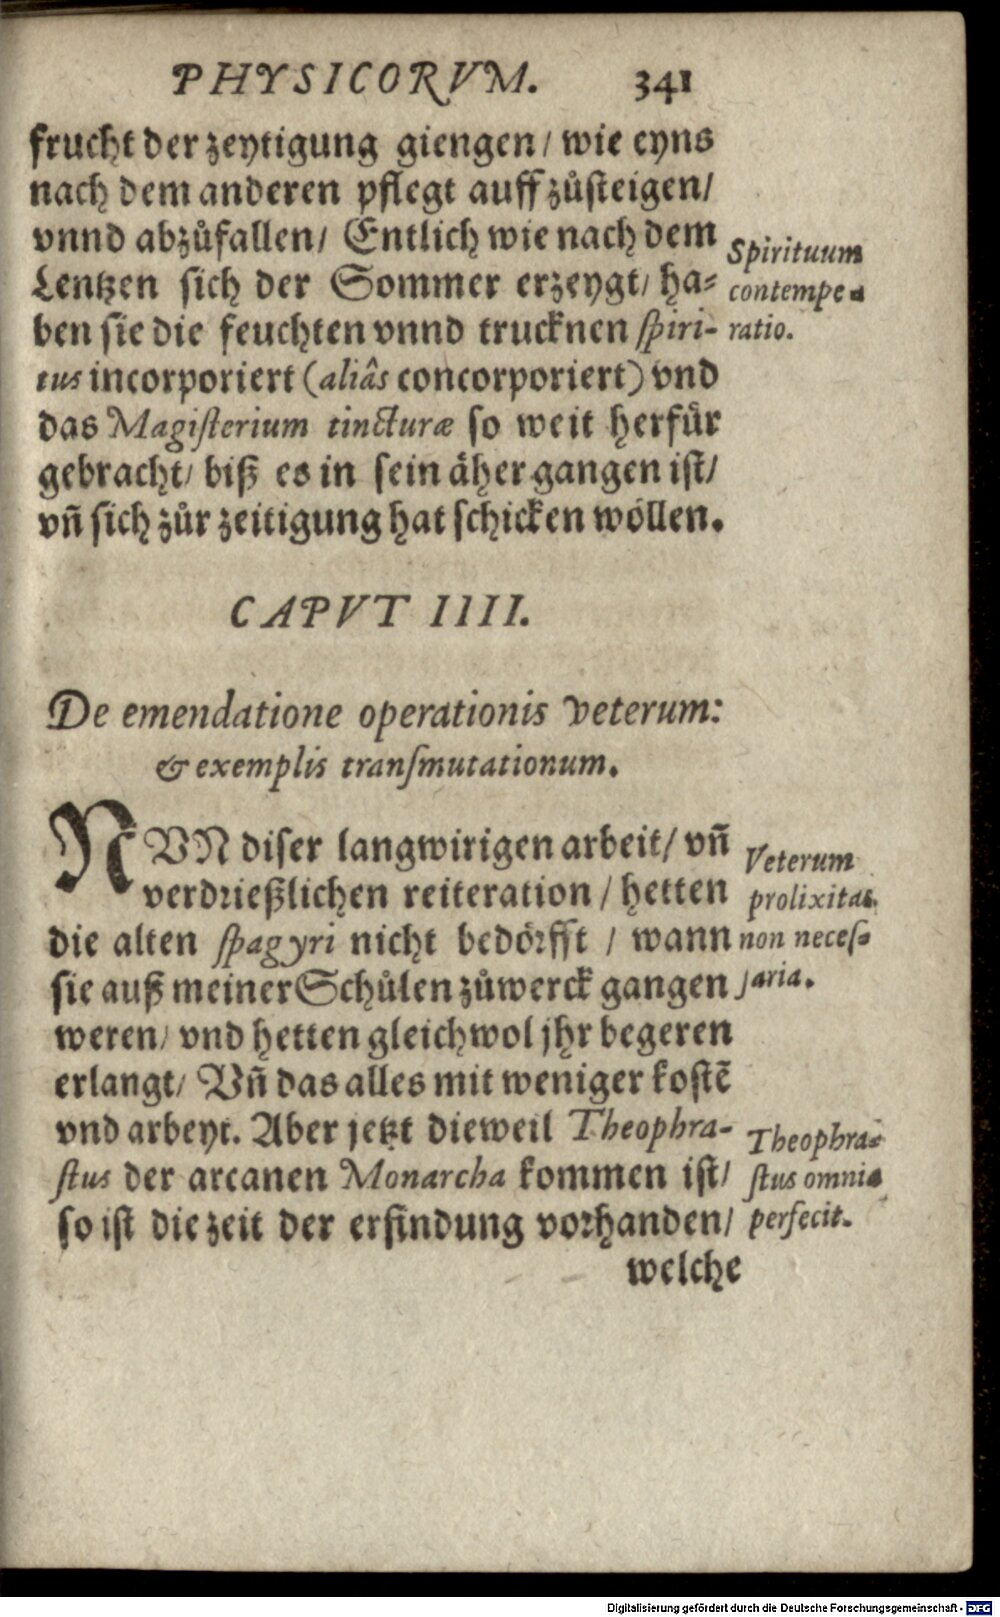 PHYSICORVM. 341
frucht der zeytigung giengen/ wie eyns
nach dem anderen pflegt auff zůsteigen/
vnnd abzůfallen/ Entlich wie nach dem
Lentzen sich der Sommer erzeygt/ ha⸗
ben sie die feuchten vnnd trucknen spiri-
tus incorporiert (aliâs concorporiert) vnd
das Magisterium tincturæ so weit herfür
gebracht/ biß es in sein äher gangen ist/
vñ sich zůr zeitigung hat schicken wöllen.
Spirituum
contempe⸗
ratio.
CAPVT IIII.
De emendatione operationis veterum:
& exemplis transmutationum.
NVN diser langwirigen arbeit/ vñ
verdrießlichen reiteration/ hetten
die alten spagyri nicht bedörfft / wann
sie auß meiner Schůlen zůwerck gangen
weren/ vnd hetten gleichwol jhr begeren
erlangt/ Vñ das alles mit weniger kostẽ
vnd arbeyt. Aber jetzt dieweil Theophra-
stus der arcanen Monarcha kommen ist/
so ist die zeit der erfindung vorhanden/
Veterum
prolixitas
non neces⸗
saria.
Theophra⸗
stus omnia
perfecit.
welche
Digitalisierung gefördert durch die Deutsche Forschungsgemeinschaft - DFG